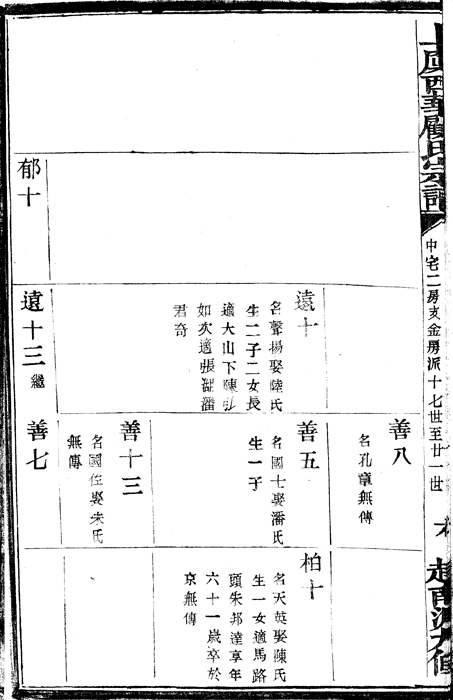 上虞西華顧氏宗譜
中宅二房支金房派十七世至廿一世
善八
名孔章無傳
遠十
名聲揚娶陸氏
生二子二女長
適大山下陳
如次適張湖潘
君奇
善五
名國士娶潘氏
生一子
柏十
名天英娶陳氏
生一女適馬路
頭朱邦達享年
六十一歲卒於
京無傳
善十三
名國任娶朱氏
無傳
郁十
遠十三 繼
善七